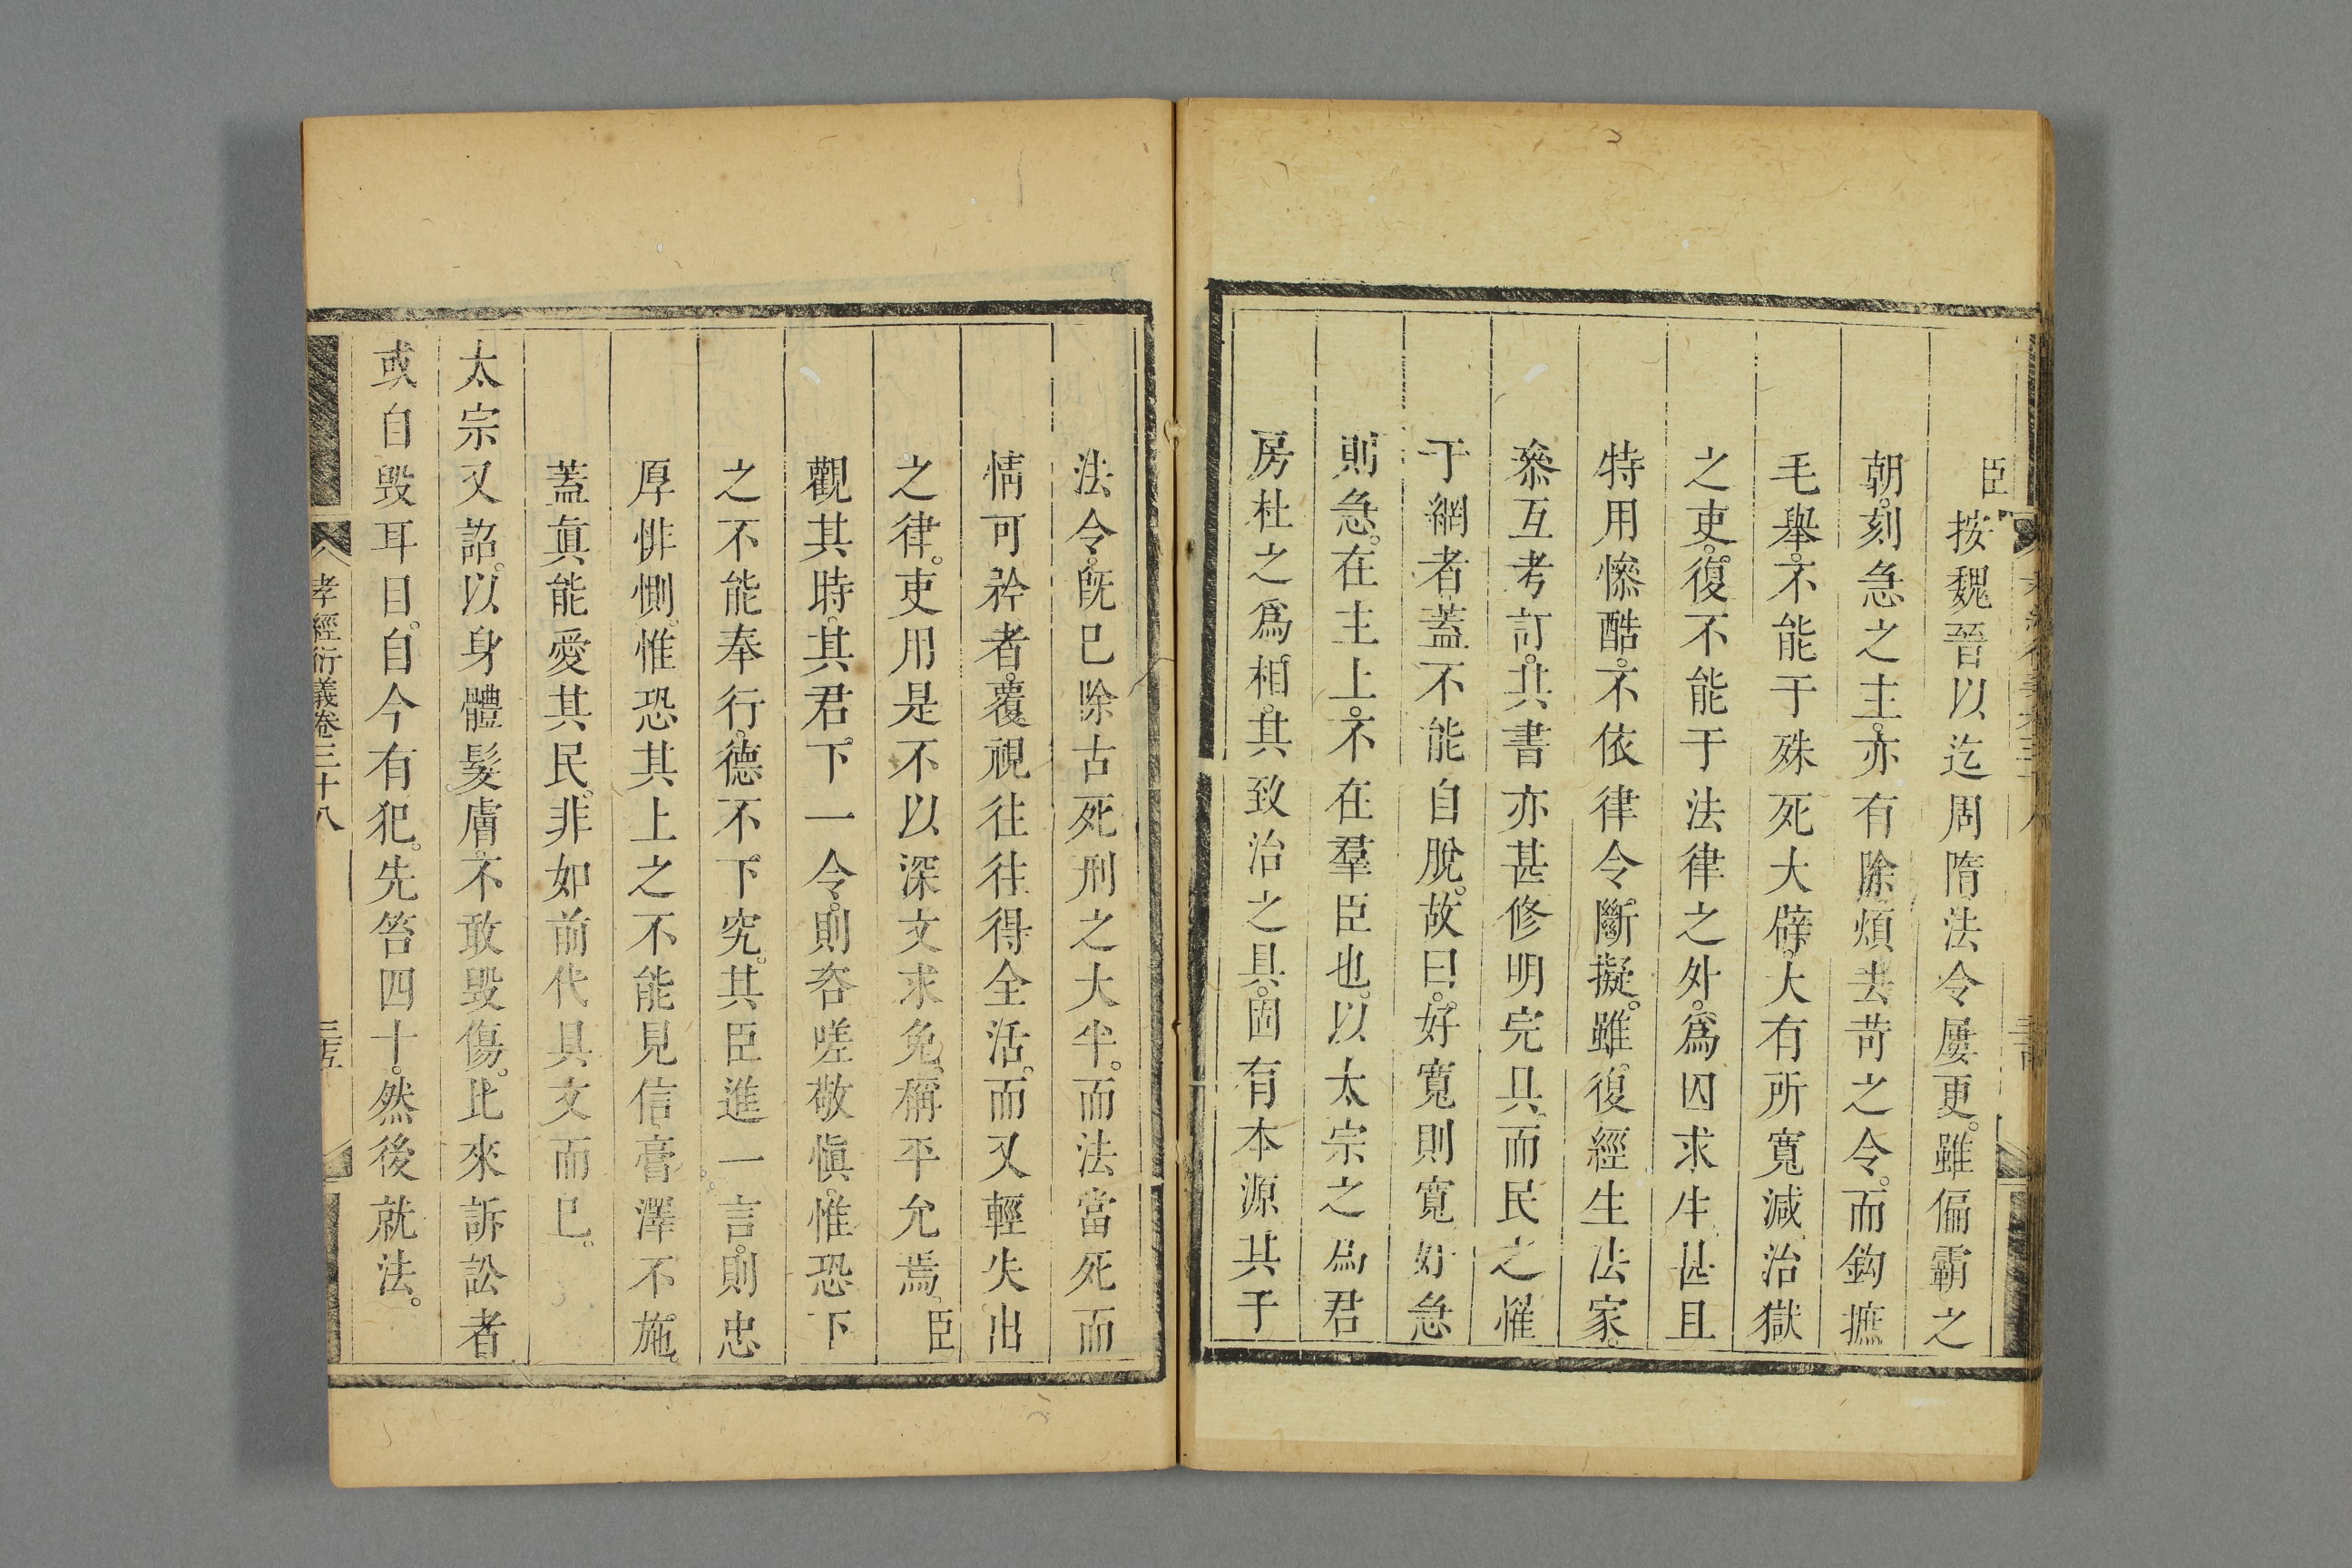 臣按魏晉以迄周隋法令屢更。雖偏霸之
朝。刻急之主。亦有除煩去苛之令。而鈎摭
毛舉。不能于殊死大辟。大有所寬減。治獄
之吏。復不能于法律之外。爲囚求生。甚且
特用慘酷。不依律令。斷擬。雖復經生法家。
叅互考訂。其書亦甚修明完具。而民之罹
于網者。蓋不能自脫。故曰。好寬則寬。好急
則急。在主上。不在羣臣也。以太宗之爲君
房杜之爲相。其致治之具。固有本源。其于
法令。旣已除古死刑之大半。而法當死而
情可矜者。覆視往往得全活。而又輕失出
之律。吏用是不以深文求免。稱平允焉。臣
觀其時。其君。下一令。則咨嗟敬愼。惟恐下
之不能奉行。德不下究。其臣進一言。則忠
厚悱惻。惟恐其上之不能見信。膏澤不施。
蓋眞能愛其民。非如前代具文而已。
太宗又詔。以身體髮膚。不敢毀傷。比來訴訟者
或自毀耳目。自今有犯。先笞四十。然後就法。
孝經衍義卷三十八